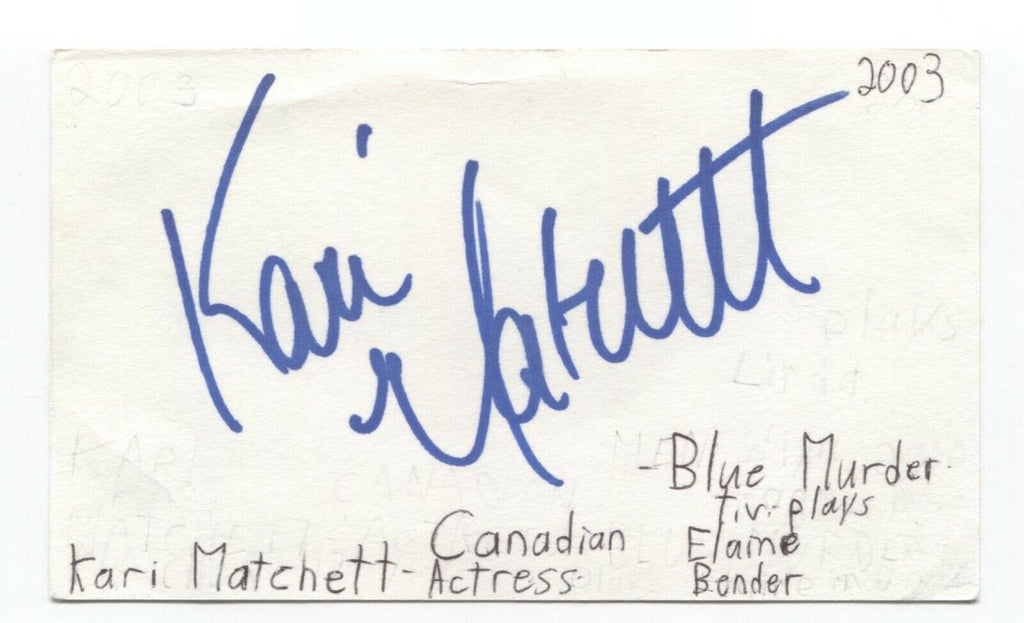 2003
Kari
Matchett
-Blue Murder
t.v.-plays
Kari Matchett- Canadian Actress
Elaine
Bender